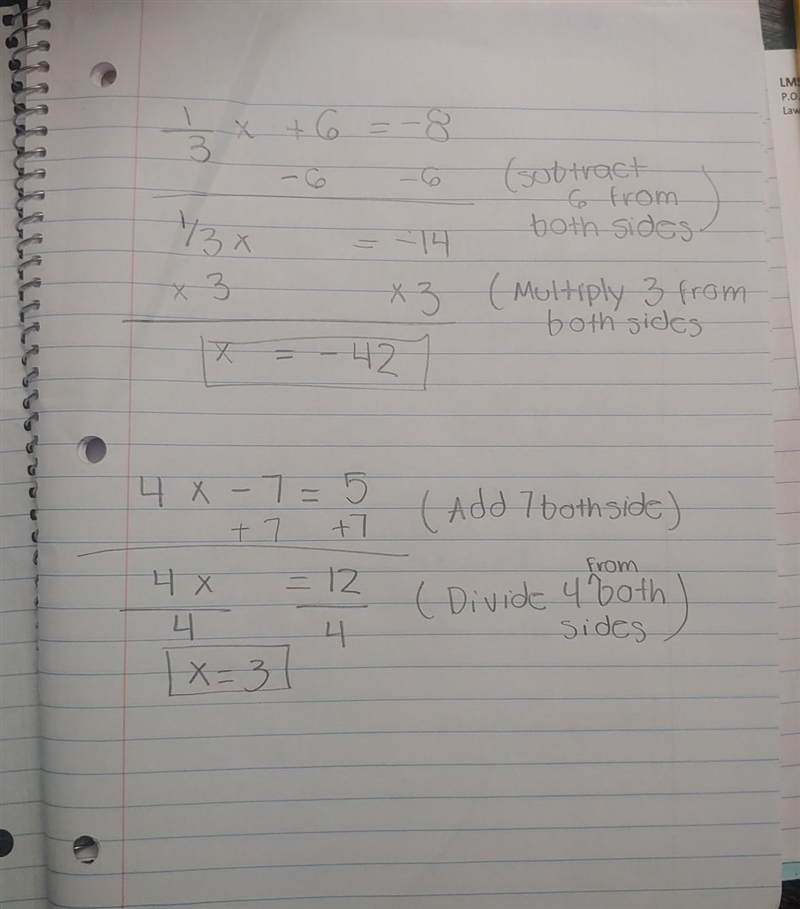 1/3 x + 6 = -8
-6 -6 (subtract
6 from
both sides)
1/3 x = -14
x 3 x 3 (Multiply 3 from
both sides
x = -42
4 x - 7 = 5
+7 +7 (Add 7 both side)
4 x = 12 (Divide 4 from both
4 4 sides)
x = 3
LMS
P.O.
Law